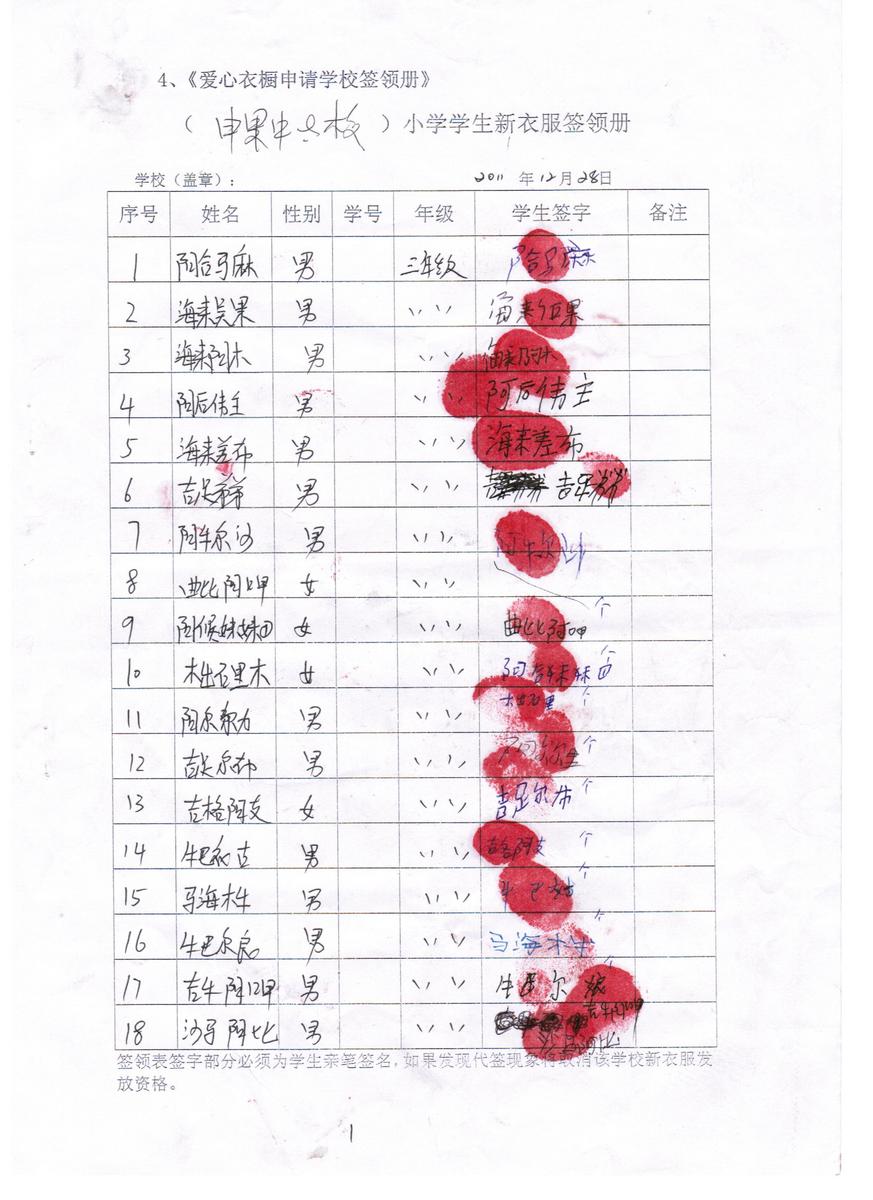 4、《爱心衣橱申请学校签领册》
（申果中心校）小学学生新衣服签领册
学校（盖章）： 2011 年 12 月 28日
序号 姓名 性别 学号 年级 学生签字 备注
1 阿合马麻 男 三年级 阿合马
2 海来吴果 男 〃 海来 果
3 海来阿木 男 〃 海来阿木
4 阿后伟主 男 〃 阿后伟主
5 海来差布 男 〃 海来差布
6 吉足 男 〃 吉足
7 阿牛尔沙 男 〃 阿牛尔沙
8 曲比阿呷 女 〃
9 阿侯妹妹 女 〃 曲比阿呷 个
10 木出石里木 女 〃 阿 个
11 阿尔 力 男 〃 木出石里 个
12 吉足尔布 男 〃 个
13 吉格阿支 女 〃 吉足尔布 个
14 牛巴 古 男 〃 吉各阿支 个
15 马海木牛 男 〃 牛巴 个
16 牛巴尔 男 〃 马海木牛 个
17 吉牛阿呷 男 〃 牛巴尔 个
18 沙马阿比 男 〃 吉牛阿呷
沙马阿比
签领表签字部分必须为学生亲笔签名，如果发现代签现象将取消该学校新衣服发
放资格。
1